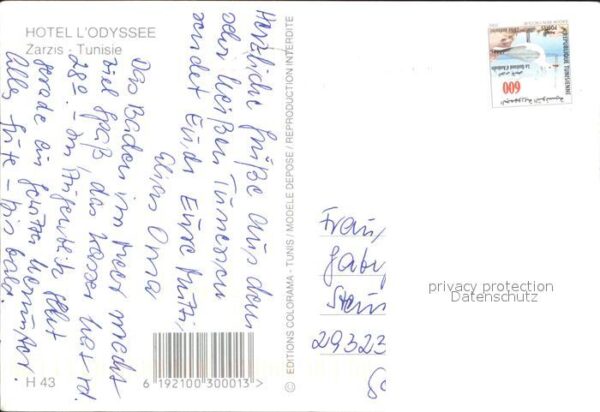 HOTEL L'ODYSSEE
Zarzis - Tunisie
Herzliche Grüße aus dem
oder heißen Tunesien
sendet Euch Eure Mutti,
Oma
Das Baden im Meer macht
viel Spaß, das Wasser hat rd.
28°. Im Augenblick geht
gerade ein
Alles Gute - bis bald.
H 43
6 192100 300013 >
© EDITIONS COLORAMA - TUNIS / MODELE DEPOSE / REPRODUCTION INTERDITE
REPUBLIQUE TUNISIENNE
600
الجمهورية التونسية
Frau
Gaby
Stein
29323
privacy protection
Datenschutz